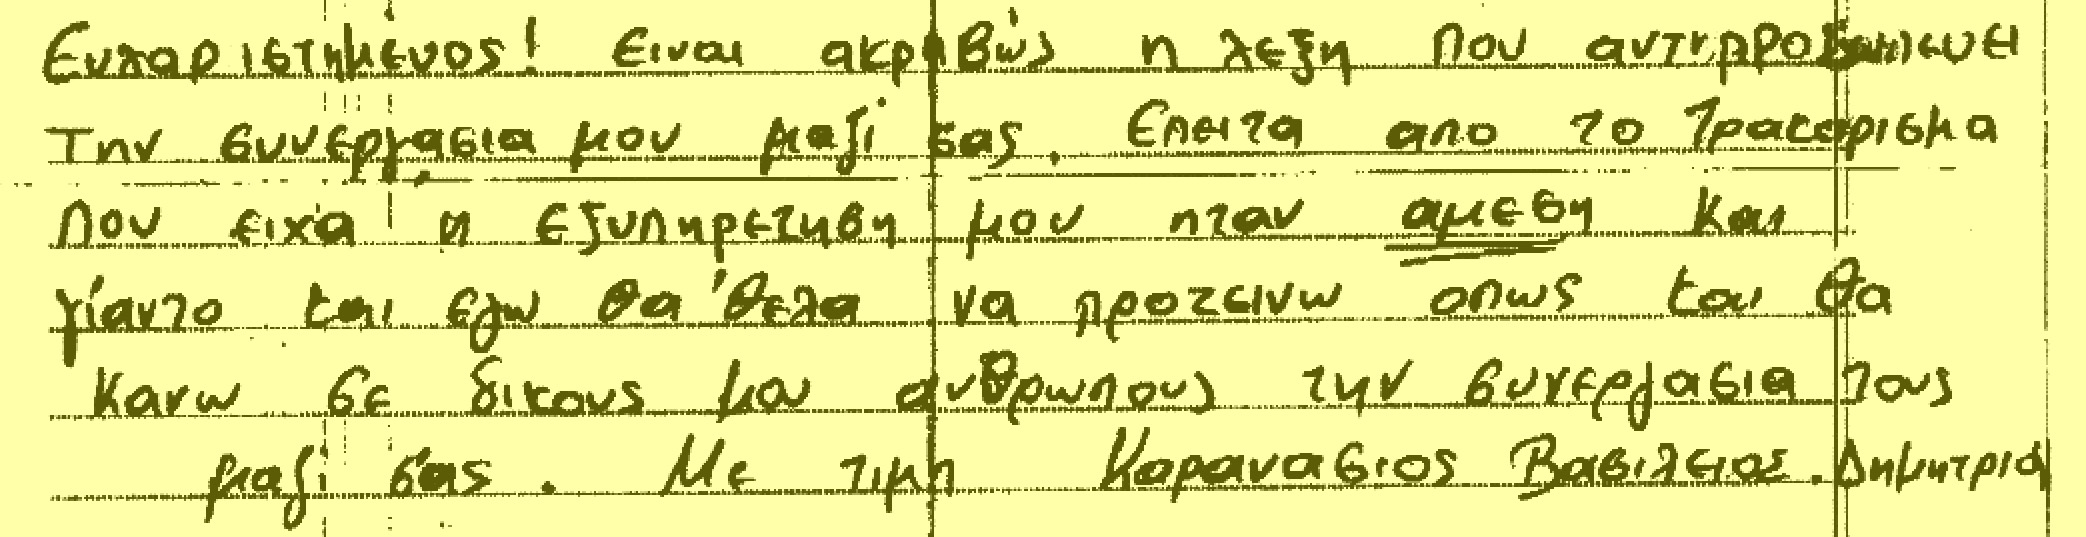 Ευχαριστημένος! Ειναι ακριβώς η λεξη που αντιπροσωπευει
Την συνεργασια μου μαζι σας. Επειτα απο το τρακαρισμα
που ειχα η εξυπηρετηση μου ηταν αμεση και
γίαυτο και εγω θα 'θελα να προτεινω οπως και θα
κανω σε δικους μου ανθρωπους την συνεργασια τους
μαζι σας. Με τιμη Καρανασιος Βασιλειος. Δημητρια